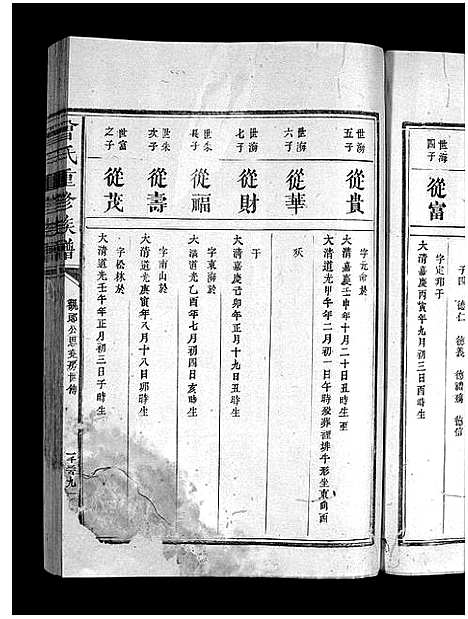 世海
四子
從富
字定邦于
大清嘉慶丙寅年九月初三日酉時生
子四 德仁 德義 德禮 德信
世海
五子
從貴
字元命於
大清嘉慶壬申年十月二十日丑時生至
大清道光甲午年二月初一日午時歿葬裡排牛形坐東向西
世海
六子
從華
歿
世海
七子
從財
于
大清嘉慶己卯年正月十九日丑時生
世朱
長子
從福
字東海於
大清道光乙酉年七月初四日亥時生
世朱
次子
從壽
字南山於
大清道光庚寅年八月十八日卯時生
世富
之子
從茂
字松林於
大清道光壬午年正月初三日子時生
曾氏重修族譜